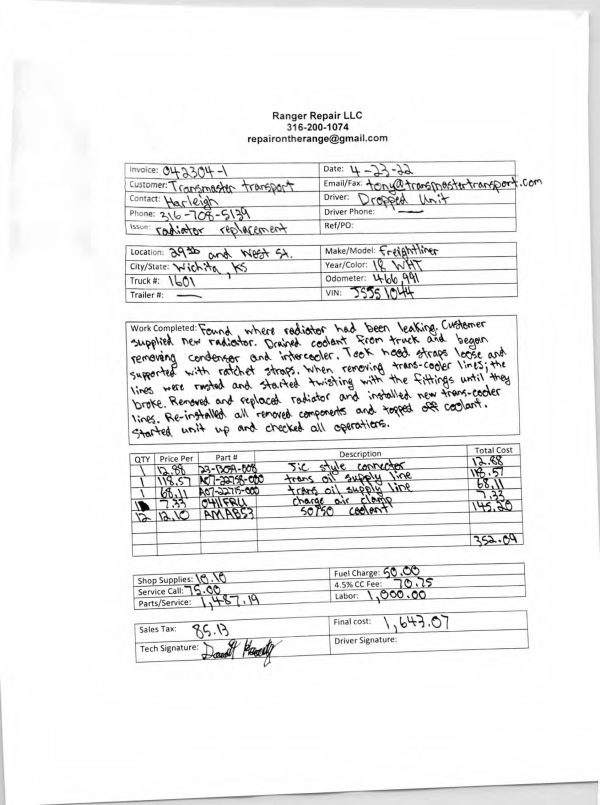 Ranger Repair LLC
316-200-1074
repairontherange@gmail.com
Invoice: 042304-1 Date: 4-23-22
Customer: Transmaster transport Email/Fax: tony@transmastertransport.com
Contact: Harleigh Driver: Dropped Unit
Phone: 316-708-5139 Driver Phone: —
Issue: radiator replacement Ref/PO:
Location: 29th and West St. Make/Model: Freightliner
City/State: Wichita, KS Year/Color: 18 WHT
Truck #: 1601 Odometer: 466,991
Trailer #: — VIN: JS5S1044
Work Completed: Found where radiator had been leaking. Customer
supplied new radiator. Drained coolant from truck and began
removing condenser and intercooler. Took hood straps loose and
supported with ratchet straps. When removing trans-cooler lines; the
lines were rusted and started twisting with the fittings until they
broke. Removed and replaced radiator and installed new trans-cooler
lines. Re-installed all removed components and topped off coolant.
Started unit up and checked all operations.
QTY Price Per Part # Description Total Cost
1 12.88 23-1309-808 Jic style connector 12.88
1 118.57 A07-22758-000 trans oil supply line 118.57
1 68.11 A07-22715-000 trans oil supply line 68.11
7.33 0411FRU charge air clamp 7.33
12 12.10 AMAB53 50/50 coolant 145.20
352.09
Shop Supplies: 10.10 Fuel Charge: 50.00
Service Call: 75.00 4.5% CC Fee: 70.75
Parts/Service: 1,487.19 Labor: 1,000.00
Sales Tax: 85.13 Final cost: 1,643.07
Tech Signature: Driver Signature: